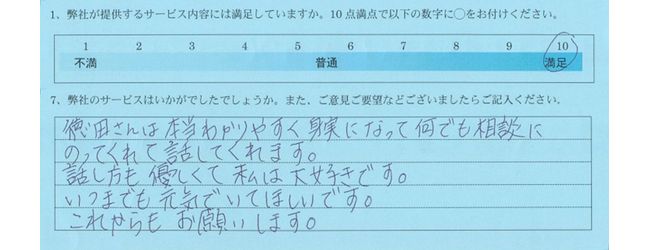 1、弊社が提供するサービス内容には満足していますか。10点満点で以下の数字に○をお付けください。
1 2 3 4 5 6 7 8 9 10
不満 普通 満足
7、弊社のサービスはいかがでしたでしょうか。また、ご意見ご要望などございましたらご記入ください。
徳田さんは本当わかりやすく身実になって何でも相談に
のってくれて話してくれます。
話し方も優しくて私は大好きです。
いつまでも元気でいてほしいです。
これからもお願いします。